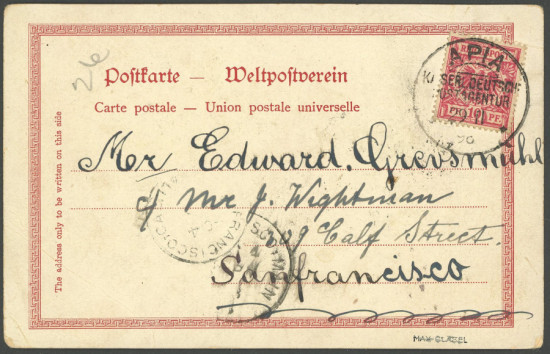 26
Postkarte — Weltpostverein
Carte postale — Union postale universelle
The address only to be written on this side
APIA
KAISERL. DEUTSCHE
POSTAGENTUR
10
Mr Edward. Grevsmühl
c/ Mr J. Wightman
Calf Street.
San francisco
FRANCISCO, CAL
MAX GLASEL